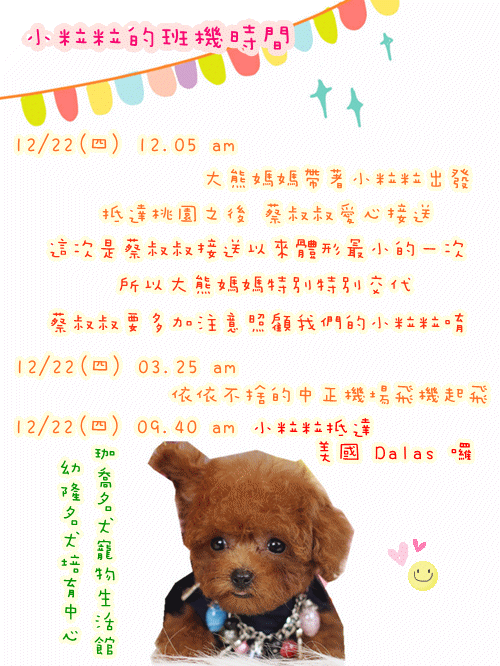 小粒粒的班機時間
12/22(四) 12.05 am
大熊媽媽帶著小粒粒出發
抵達桃園之後 蔡叔叔愛心接送
這次是蔡叔叔接送以來體形最小的一次
所以大熊媽媽特別特別交代
蔡叔叔要多加注意照顧我們的小粒粒唷
12/22(四) 03.25 am
依依不捨的中正機場飛機起飛
12/22(四) 09.40 am 小粒粒抵達
美國 Dalas 囉
珈喬名犬寵物生活館
幼隆名犬培育中心